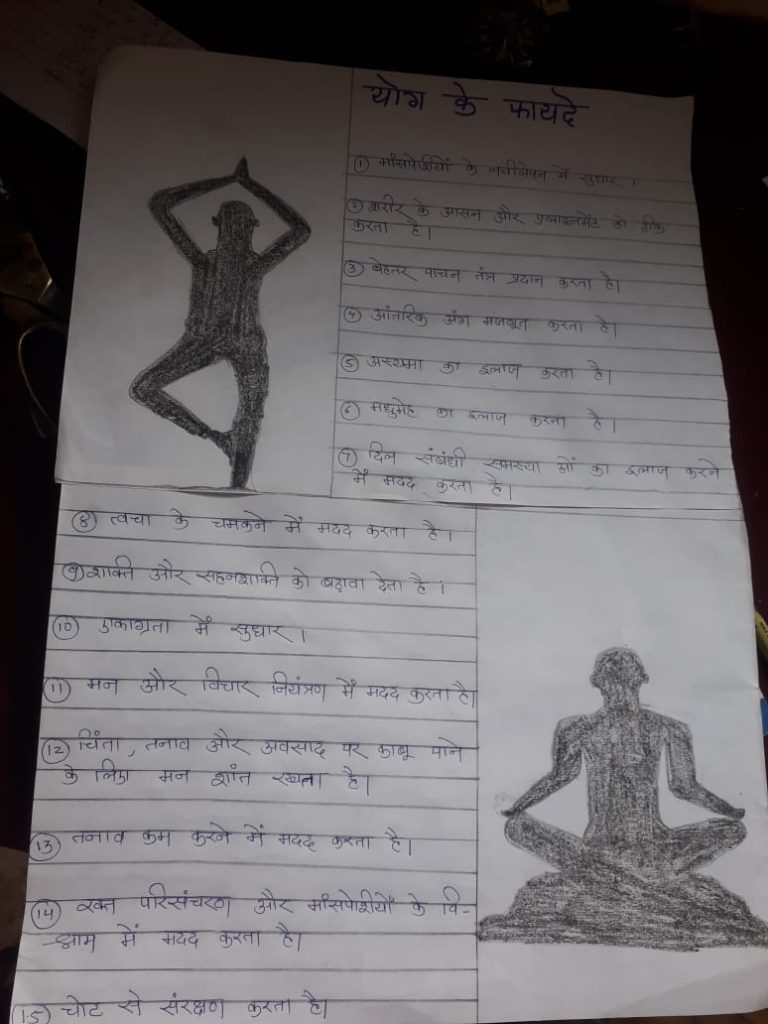 योग के फायदे
① माँसपेशीयों के लचीलेपन में सुधार ।
② शरीर के आसन और एलाइनमेंट को ठीक
करता है।
③ बेहतर पाचन तंत्र प्रदान करता है।
④ आंतरिक अंग मजबूत करता है।
⑤ अस्थमा का इलाज करता है।
⑥ मधुमेह का इलाज करता है।
⑦ दिल संबंधी समस्या ओं का इलाज करने
में मदद करता है।
⑧ त्वचा के चमकने में मदद करता है।
⑨ शक्ति और सहनशक्ति को बढ़ावा देता है ।
⑩ एकाग्रता में सुधार ।
⑪ मन और विचार नियंत्रण में मदद करता है।
⑫ चिंता, तनाव और अवसाद पर काबू पाने
के लिए मन शांत रखता है।
⑬ तनाव कम करने में मदद करता है।
⑭ रक्त परिसंचरण और माँसपेशीयों के वि-
-श्राम में मदद करता है।
⑮ चोट से संरक्षण करता है।